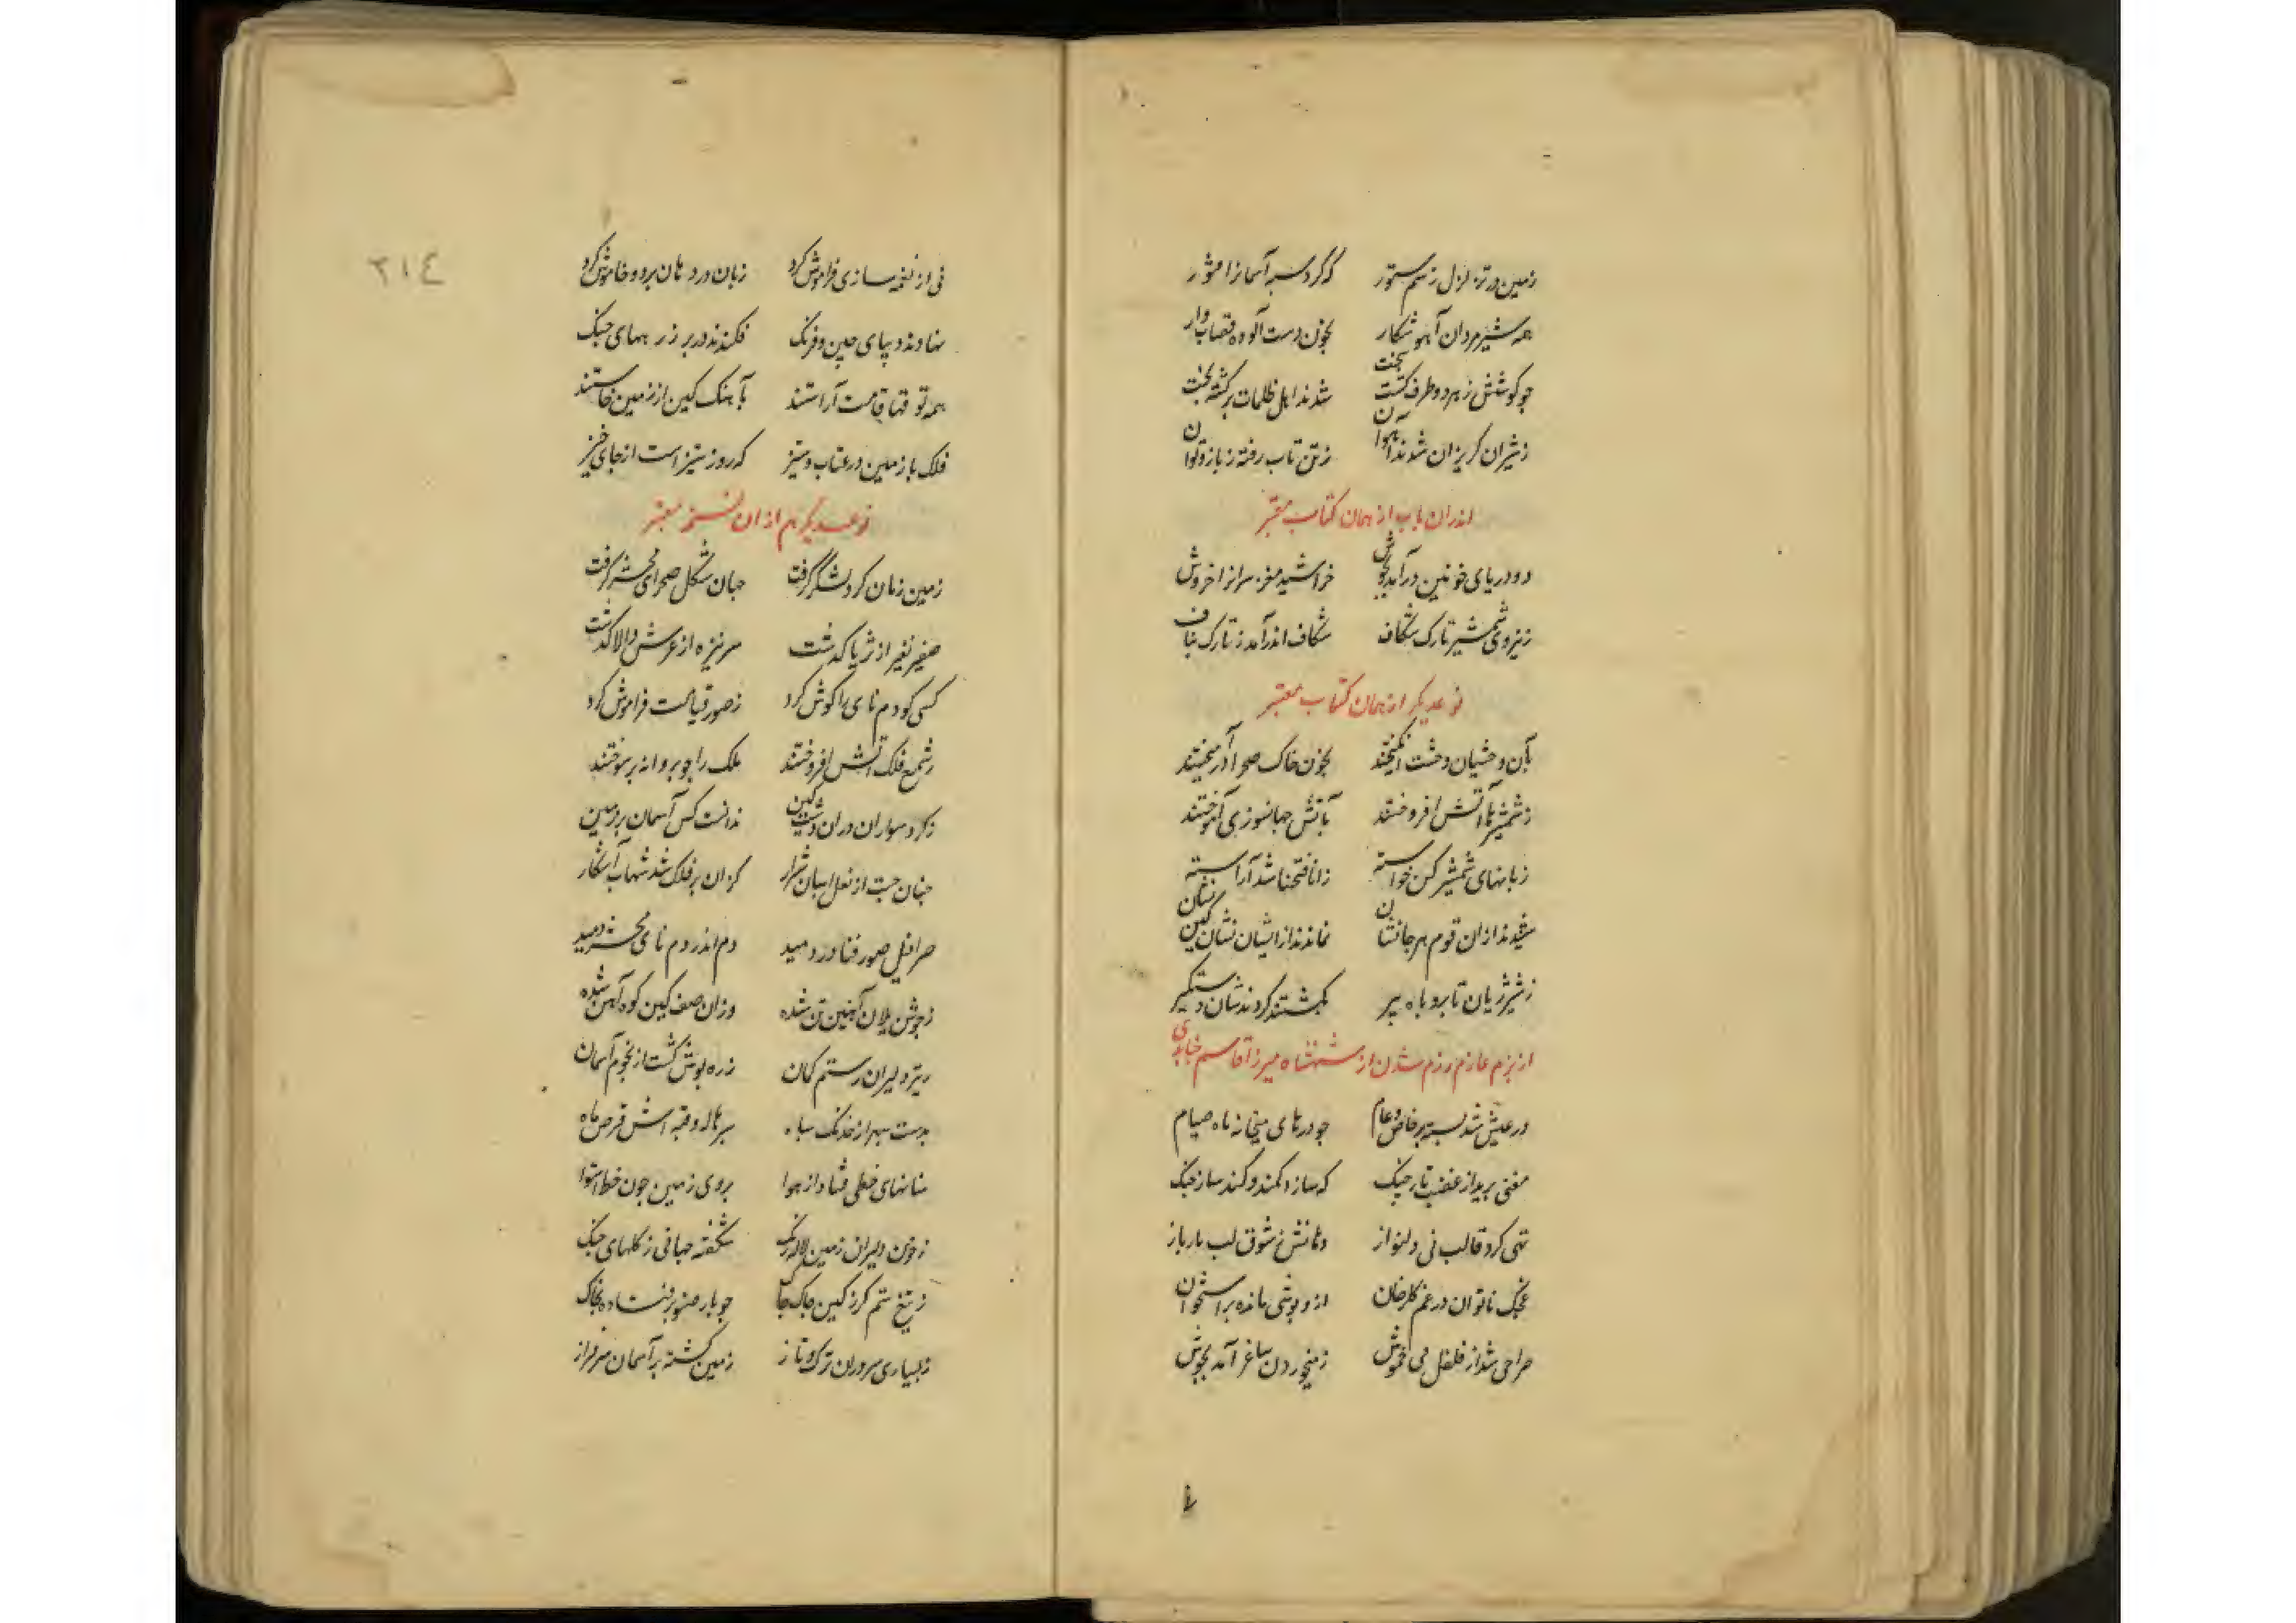 زمین در تزلزل ز سم ستور که گرد سبه آسمانرا منثور
همه شیرمردان آهو شکار بخون دست آلوده قصاب وار
چو کوشش ز هر دو طرف گشت سخت شدند اهل ظلمات برگشته بخت
ز شیران گریزان شدند آهوان ز تن تاب رفته ز بازو توان
اندران باب از همان کتاب معتبر
دو دریای خونین درآمد بجوش خراشید مغز سرانرا خروش
ز نیروی شمشیر تارک شکاف شکاف اندرآمد ز تارک بناف
نوعدیگر از همان کتاب معتبر
بآن وحشیان وحشت انگیختند بخون خاک صحرا درآمیختند
ز شمشیرها آتش افروختند بآتش جهانسوزی آموختند
زبانهای شمشیر کین خواسته ز انا فتحنا شد آراسته
شنیدند ازان قوم هر جا نشان نماندند از ایشان نشان کین نشان
ز شیر ژیان تا بروباه پیر بکشتند کردندشان دستگیر
از بزم عازم رزم شدن از شهنشاه میرزا قاسم جنابدی
در عیش شد بسته بر خاص و عام چو درهای میخانه ماه صیام
مغنی برید از غضب تار چنگ که سازد کمند و کند ساز جنگ
تهی کرد قالب نی دلنواز دهانش ز شوق لب یار باز
غچک ناتوان در غم گلرخان ازو پوستی مانده بر استخوان
صراحی شد از قلقل می خموش ز می خوردن ساغر آمد بجوش
نی از نغمه سازی فراموش کرد زبان در دهان برد و خاموش کرد
نهادند دیبای چین و فرنگ فکندند در بر زرههای جنگ
همه تو قها قامت آراستند بآهنگ کین از زمین خاستند
فلک با زمین در عتاب و ستیز که روز ستیز است از جای خیز
نوعدیگر هم ازان نسخه معتبر
زمین زمان گرد لشگر گرفت جهان شکل صحرای محشر گرفت
صفیر نفیر از ثریا گذشت سر نیزه از عرش والا گذشت
کسی کو دم نای را گوش کرد ز صور قیامت فراموش کرد
ز شمع فلک آتش افروختند ملک را چو پروانه پر سوختند
ز گرد سواران دران دشت کین ندانست کس آسمان بر زمین
چنان جست از نعل اسبان شرار کزان بر فلک شد شهاب آشکار
صرافیل صور فنا در دمید دم اندر دم نای محشر دمید
ز جوش یلان آهنین تن شده وزان صف کین کوه آهن شده
ز تیر دلیران رستم کمان زره پوش گشت از نجوم آسمان
بدست سپهر از خدنگ سپاه سپر هاله و قبه اش قرص ماه
سنانهای خطی فتاد از هوا بروی زمین چون خط استوا
ز خون دلیران زمین لاله رنگ شکفته جهانی ز گلهای جنگ
ز تیغ ستم گرز کین چاک چاک چو بار صنوبر فتاده بخاک
ز بسیاری سروران ترکتاز زمین گشته بر آسمان سرفراز
٢١٤